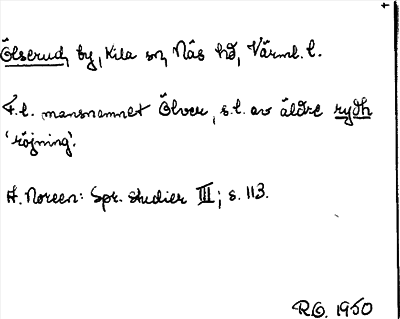 Ölserud, by, Kila sn, Näs hd, Värml. l.
F.l. mansnamnet Ölver, s.l. av äldre rydh
'röjning'.
A. Noreen: Spr. studier III; s. 113.
R.O. 1950